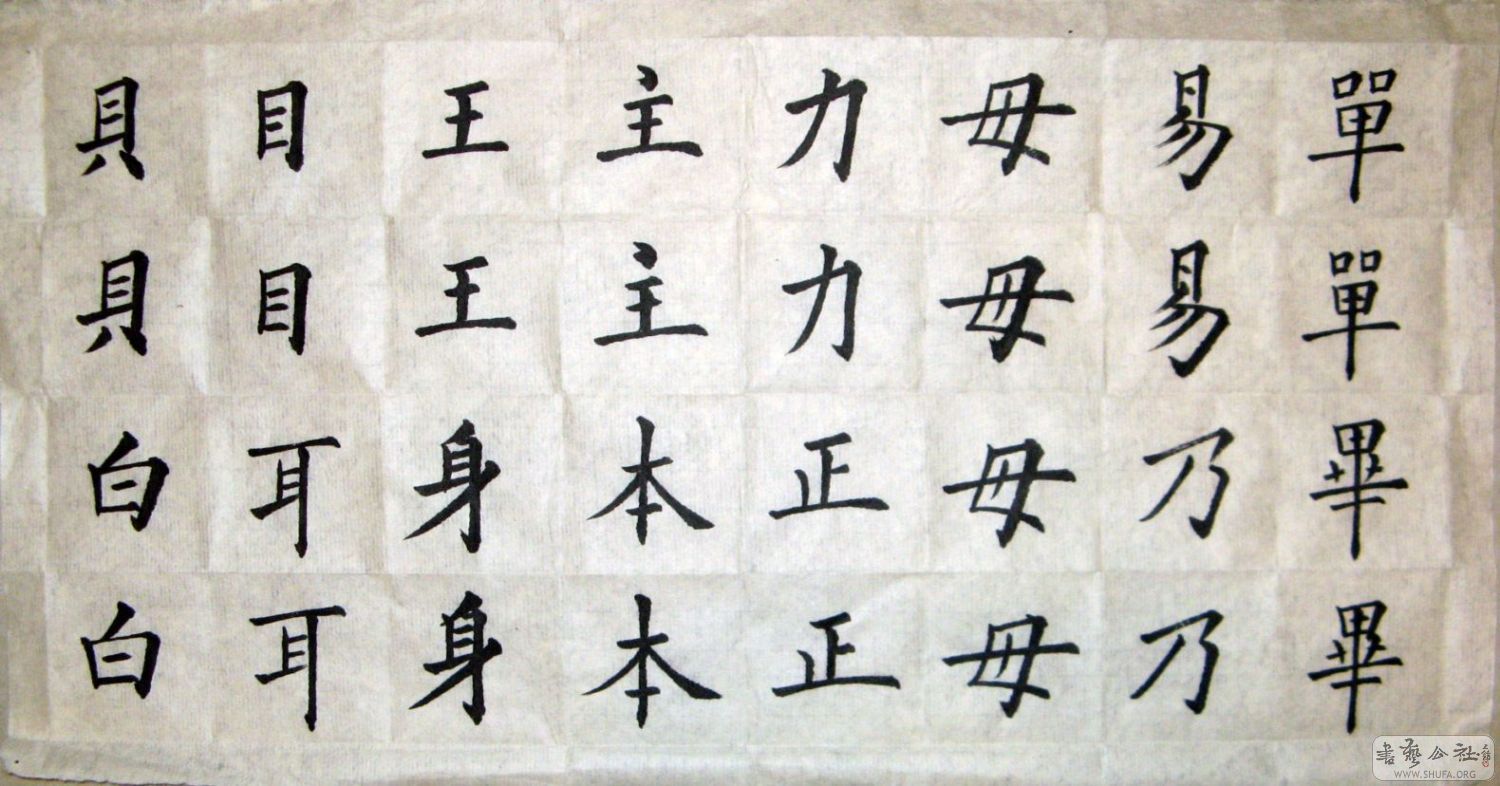 單單畢畢
易易乃乃
母母母母
力力正正
主主本本
王王身身
目目耳耳
貝貝白白
書藝公社
WWW.SHUFA.ORG